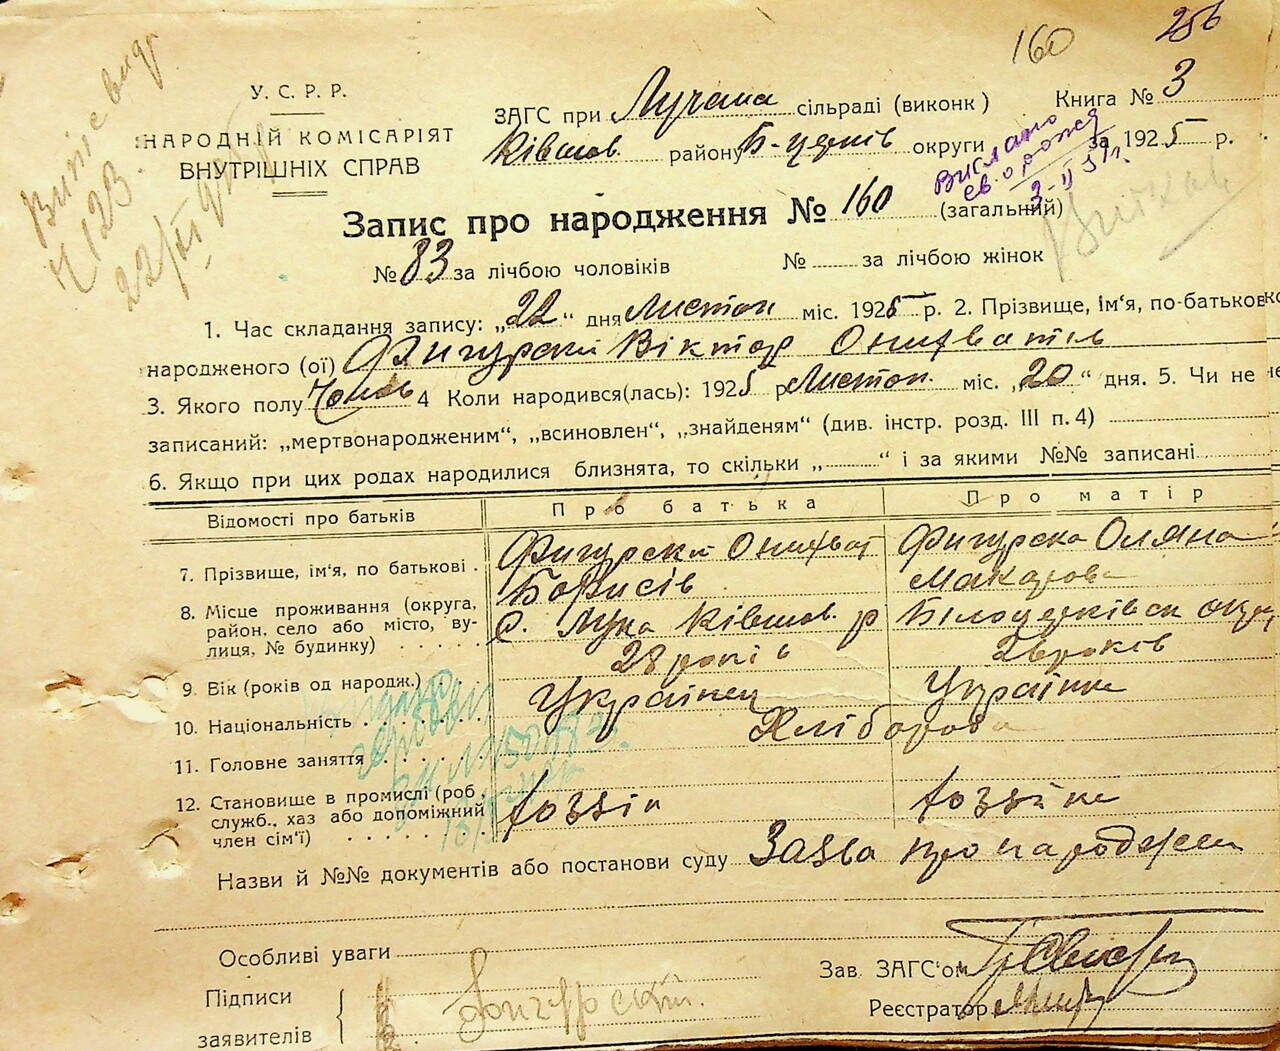 160 256
У. С. Р. Р.
НАРОДНІЙ КОМІСАРІЯТ
ВНУТРІШНІХ СПРАВ
ЗАГС при Лучана сільраді (виконк) Книга № 3
Ківшов. району Б-церків округи за 1925 р.
Вислано
св. о рожд
Запис про народження № 160 (загальний)
№ 83 за лічбою чоловіків № за лічбою жінок
1. Час складання запису: „22“ дня Листоп міс. 1925 р. 2. Прізвище, ім‘я, по-батькові
народженого (ої) Фигурский Віктор Онихватів
3. Якого полу Чолов 4 Коли народився(лась): 1925 р Листоп. міс. „20“ дня. 5. Чи не
записаний: „мертвонародженим“, „всиновлен“, „знайденям“ (див. інстр. розд. III п. 4)
6. Якщо при цих родах народилися близнята, то скільки „ “ і за якими №№ записані
Відомості про батьків Про батька Про матір
7. Прізвище, ім‘я, по батькові . Фигурский Онихват Фигурска Оляна
Борисів Макарова
8. Місце проживання (округа, район. село або місто, вулиця, № будинку) с. Лука Ківшов. р Білоцерківск окр
9. Вік (років од народж.) 28 років 26 років
10. Національність Українец Українка
11. Головне заняття Хлібороба
12. Становище в промислі (роб, служб., хаз або допоміжний член сім‘ї) хозяін хозяйка
Назви й №№ документів або постанови суду Заява про народжен
Особливі уваги
Зав. ЗАГС‘ом
Підписи
заявителів Фигурский.
Реєстратор